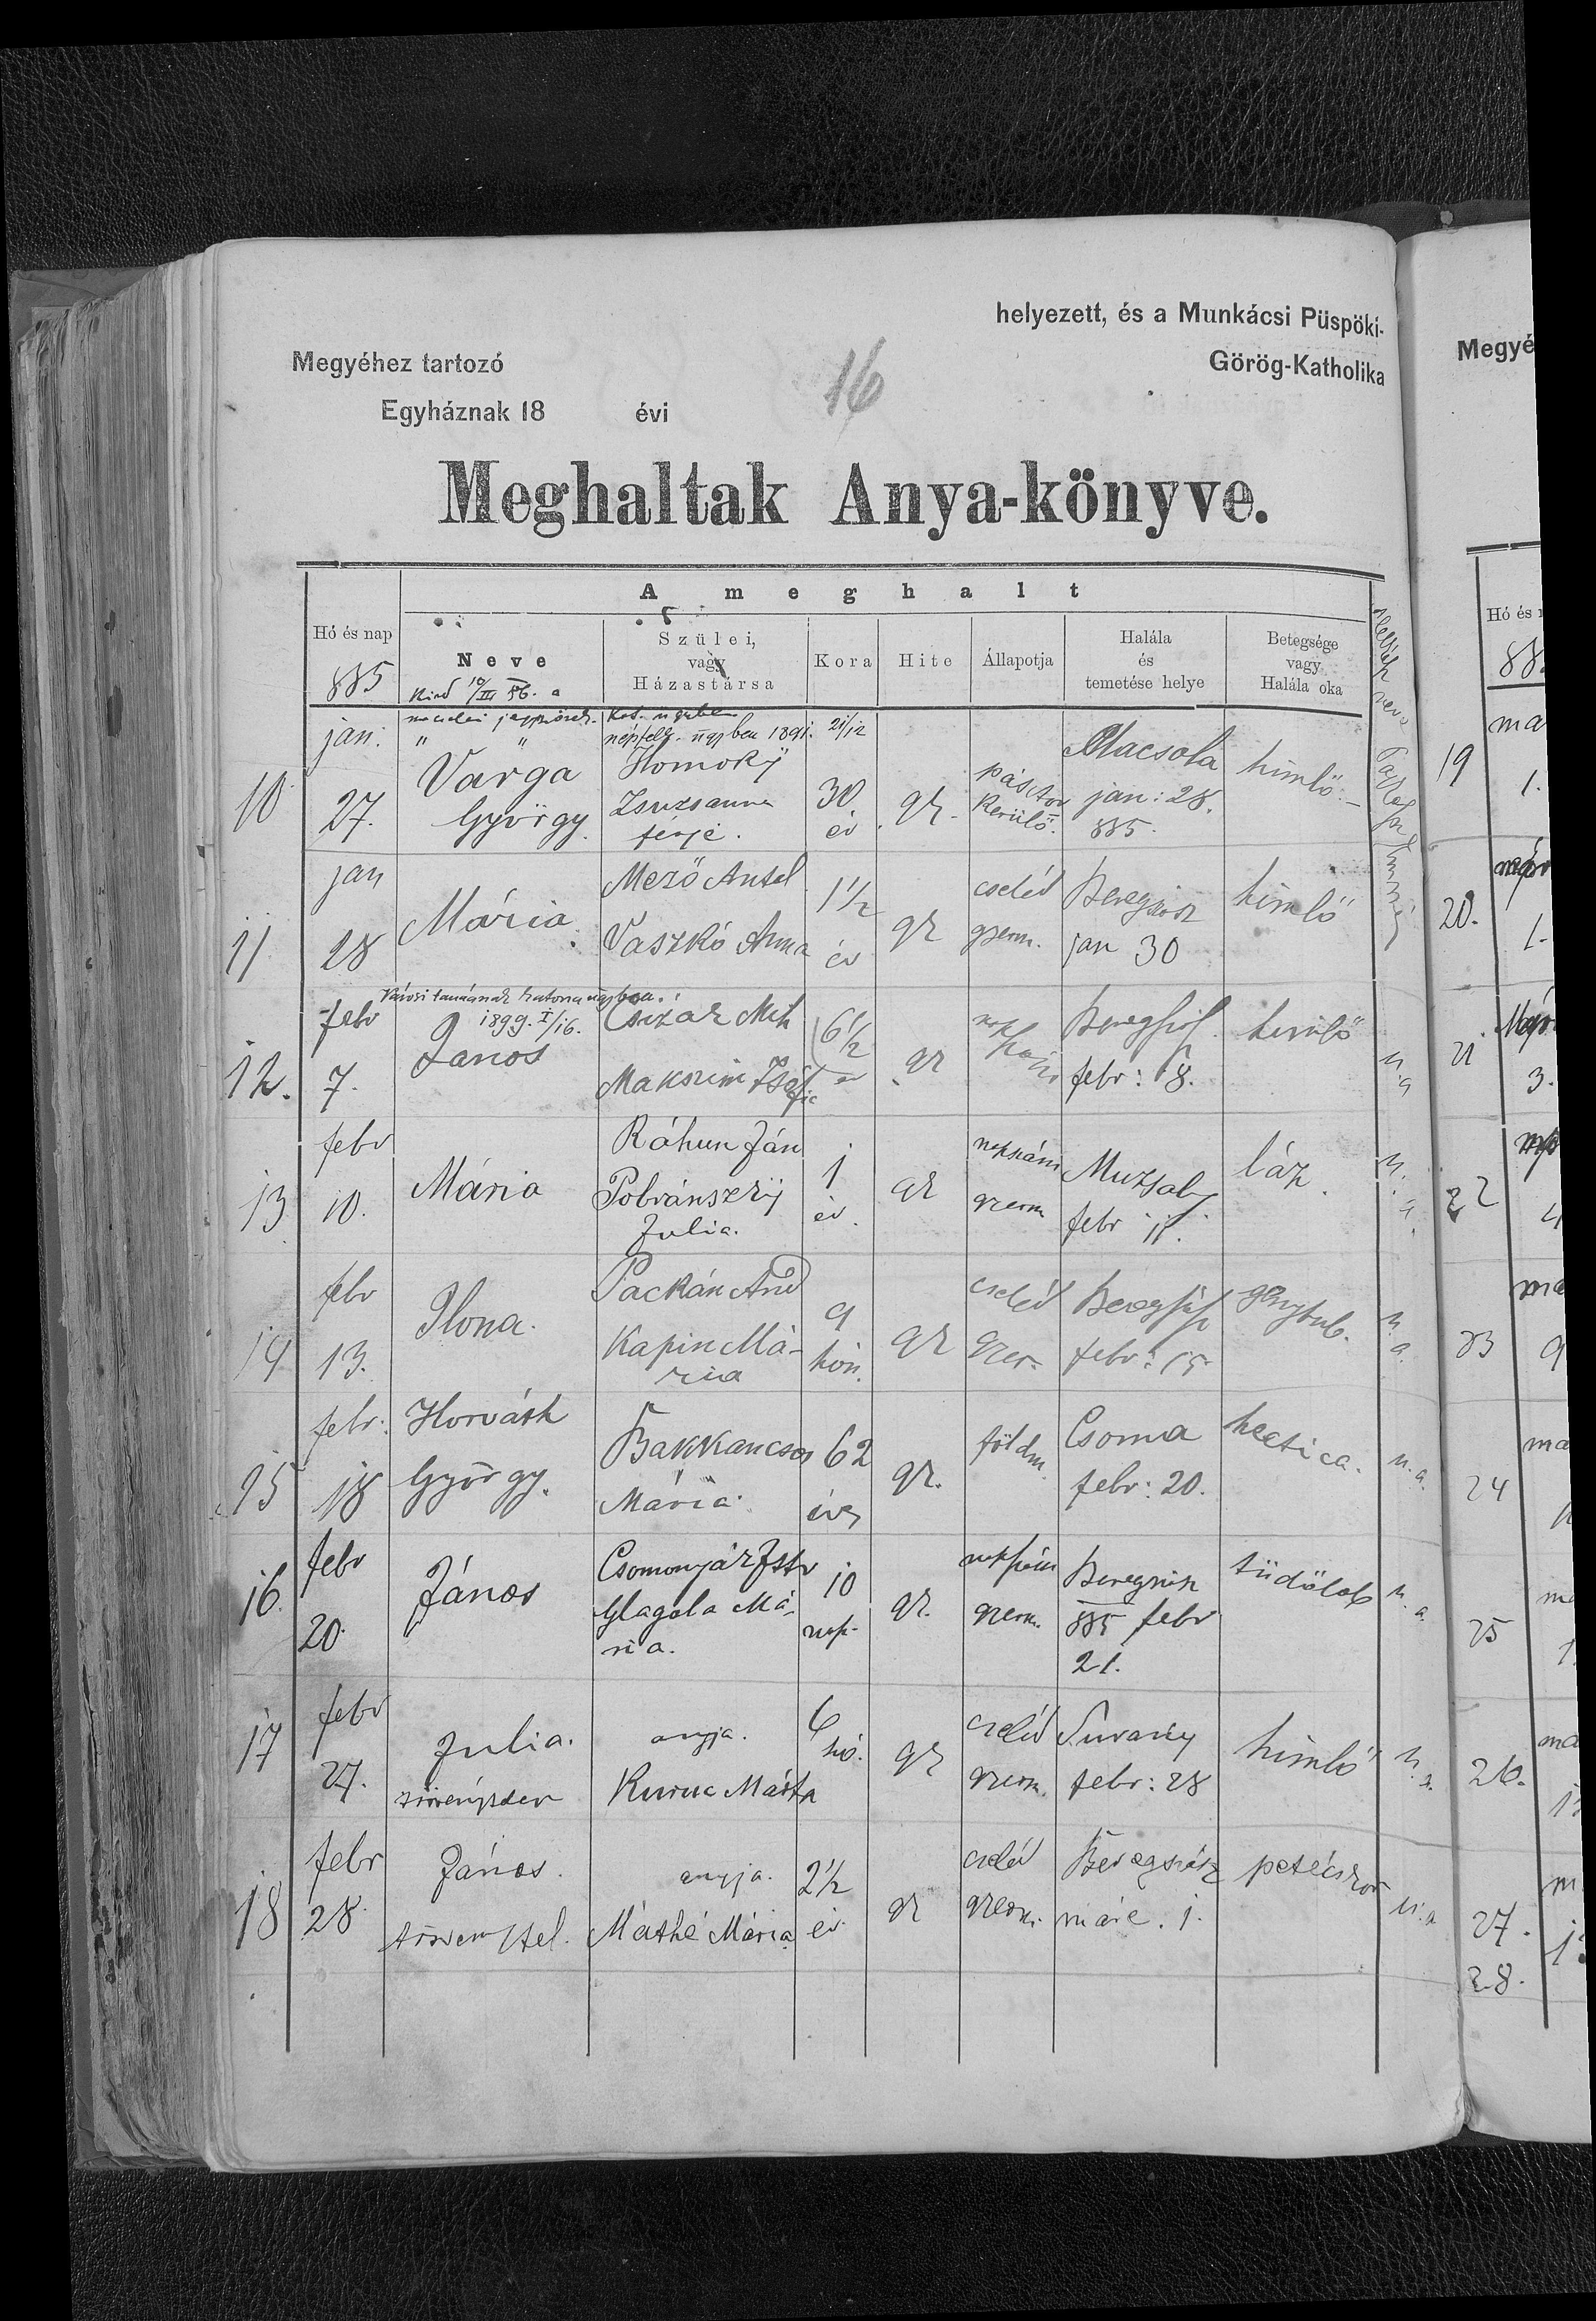 helyezett, és a Munkácsi Püspöki-
Megyéhez tartozó
Görög-Katholika
16
Egyháznak 18 évi
Meghaltak Anya-könyve.
A meghalt
Hó és nap
885
Neve
Kiad 10/III 86. a
Szülei,
vagy
Házastársa
Kora
Hite
Állapotja
Halála
és
temetése helye
Betegsége
vagy
Halála oka
népfelk. ügyben 1891. 21/12
10
jan.
27.
Varga
György.
Homoky
Zsuzsanna
férje.
30
év
gk.
pásztor
Kerülő.
Macsola
jan: 28.
885.
himlő.
11
jan
28
Mária.
Mező Antal
Vaszkó Anna
1 1/2
év
gk
cseléd
gyerm.
Beregszász
jan 30
himlő
Városi tanácsnak katona ügyben.
1899. I/16.
12.
febr
7.
János
Csizár Mih
Makszim Zsófia
6 1/2
év
gk
febr: 8.
himlő
n.a
13
febr
10.
Mária
Ráhun Ján
Julia.
1
év.
gk
napszám
gyerm
Muzsaly
febr 11.
láz.
n. a.
14
febr
13.
Ilona.
Packán And
Kapin Má-
ria
9
hón.
gk
cseléd
gyer.
febr: 15
n. a.
15
febr:
18
Horváth
György.
Bakkancsos
Mária.
62
éves
gk.
földm.
Csoma
febr: 20.
hectica.
n.a.
16.
febr
20.
János
Csomonyár Istv
Glagola Má-
ria.
10
nap.
gk.
napszám
gyerm.
Beregszász
885 febr
21.
tüdőlob
n. a.
17
febr
27.
Julia.
törvénytelen
anyja.
Kuruc Márta
6
hó.
gk
cseléd
gyerm.
febr: 28
himlő
n. a.
18
febr
28.
János.
törventel.
anyja.
Máthé Mária
2 1/2
év.
gk
cseléd
gyerm.
Beregszász
márc. 1.
n.a
Megyé
Hó és
88
19
ma
1.
20.
1.
21
3.
22
4
23
ma
9
24
ma
25
26.
ma
27.
28.